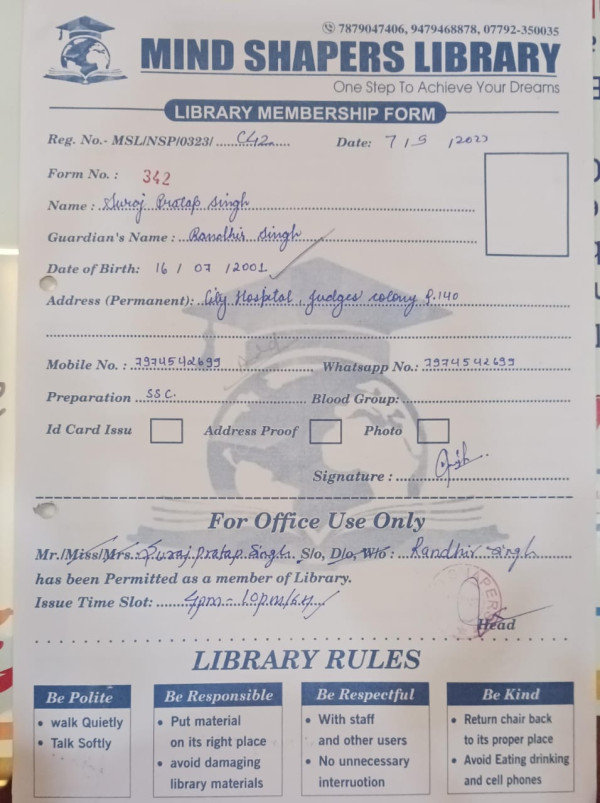 7879047406, 9479468878, 07792-350035
MIND SHAPERS LIBRARY
One Step To Achieve Your Dreams
LIBRARY MEMBERSHIP FORM
Reg. No.- MSL/NSP/0323/ C42 Date: 7 / 9 / 2023
Form No. : 342
Name : Suraj Pratap Singh
Guardian's Name : Randhir Singh
Date of Birth: 16 / 07 / 2001
Address (Permanent): City Hospital, Judges colony q.140
Mobile No. : 7974542699 Whatsapp No.: 7974542699
Preparation SSC. Blood Group:
Id Card Issu Address Proof Photo
Signature :
For Office Use Only
Mr./Miss/Mrs. Suraj Pratap Singh S/o, D/o, W/o : Randhir Singh
has been Permitted as a member of Library.
Issue Time Slot: 4pm - 10pm/6H
Head
LIBRARY RULES
Be Polite
• walk Quietly
• Talk Softly
Be Responsible
• Put material
on its right place
• avoid damaging
library materials
Be Respectful
• With staff
and other users
• No unnecessary
interruotion
Be Kind
• Return chair back
to its proper place
• Avoid Eating drinking
and cell phones